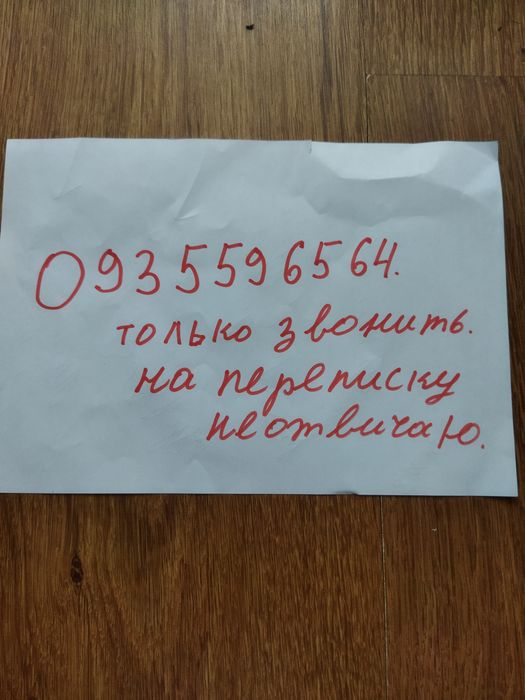 0935596564.
только звонить.
на переписку
неотвичаю.